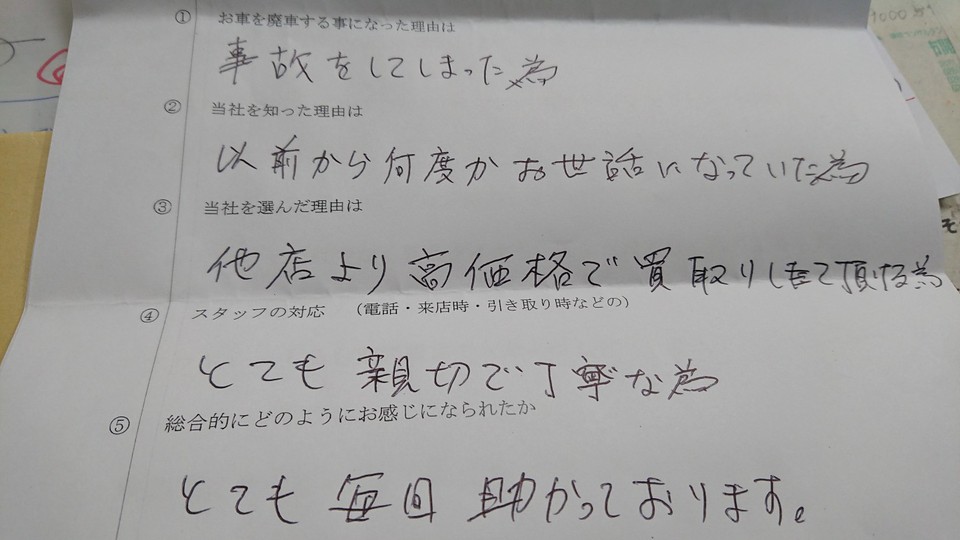 ① お車を廃車する事になった理由は
事故をしてしまった為
② 当社を知った理由は
以前から何度かお世話になっていた為
③ 当社を選んだ理由は
他店より高価格で買取りして頂ける為
④ スタッフの対応 (電話・来店時・引き取り時などの)
とても親切で丁寧な為
⑤ 総合的にどのようにお感じになられたか
とても毎回助かっております。